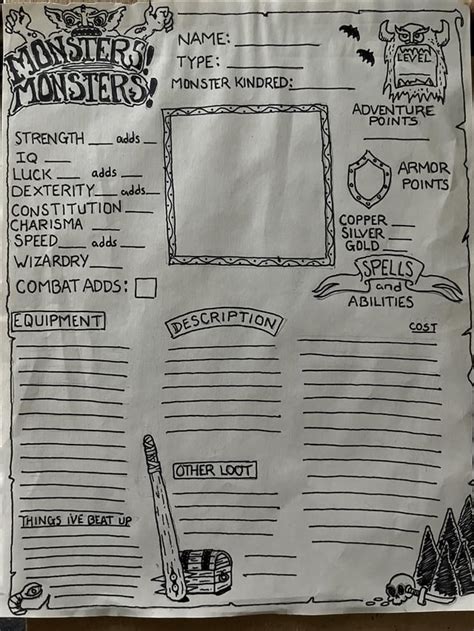 MONSTERS!
MONSTERS!
NAME:
TYPE:
MONSTER KINDRED:
LEVEL
ADVENTURE
POINTS
STRENGTH adds
IQ
LUCK adds
DEXTERITY adds
CONSTITUTION
CHARISMA
SPEED adds
WIZARDRY
COMBAT ADDS:
ARMOR
POINTS
COPPER
SILVER
GOLD
SPELLS
and
ABILITIES
EQUIPMENT
DESCRIPTION
COST
OTHER LOOT
THINGS I'VE BEAT UP